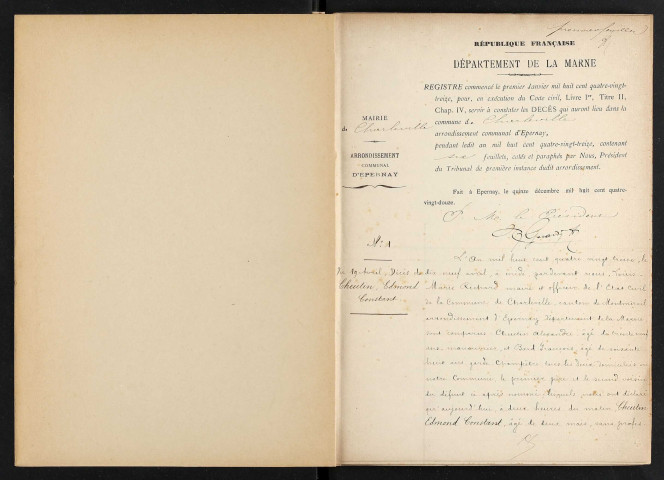 premier feuillet
RÉPUBLIQUE FRANÇAISE
DÉPARTEMENT DE LA MARNE
REGISTRE commencé le premier Janvier mil huit cent quatre-vingt-
treize, pour, en exécution du Code civil, Livre Ier, Titre II,
Chap. IV, servir à constater les DÉCÈS qui auront lieu dans la
commune de Charleville
arrondissement communal d'Epernay,
pendant ledit an mil huit cent quatre-vingt-treize, contenant
feuillets, cotés et paraphés par Nous, Président
du Tribunal de première instance dudit arrondissement.
Fait à Epernay, le quinze décembre mil huit cent quatre-
vingt-douze.
MAIRIE
de Charleville
ARRONDISSEMENT
COMMUNAL
D'ÉPERNAY
P. M. le Président
N° 1
Du 19 Avril, Décès de
Cheutin, Edmond
Constant.
L'An mil huit cent quatre vingt treize, le
dix neuf avril, à midi par devant nous,
Marie Richard maire et officier de l'Etat Civil
de la Commune de Charleville, canton de Montmirail
arrondissement d'Epernay, département de la Marne
sont comparus Cheutin Alexandre, âgé de trente neuf
ans, manouvrier, et François, âgé de soixante
deux ans, garde Champêtre, tous les deux domiciliés en
notre Commune, le premier père et le second voisin
du défunt ci après nommé, lesquels nous ont déclaré
que aujourd'hui, à deux heures du matin Cheutin
Edmond Constant, âgé de deux mois, sans profes-